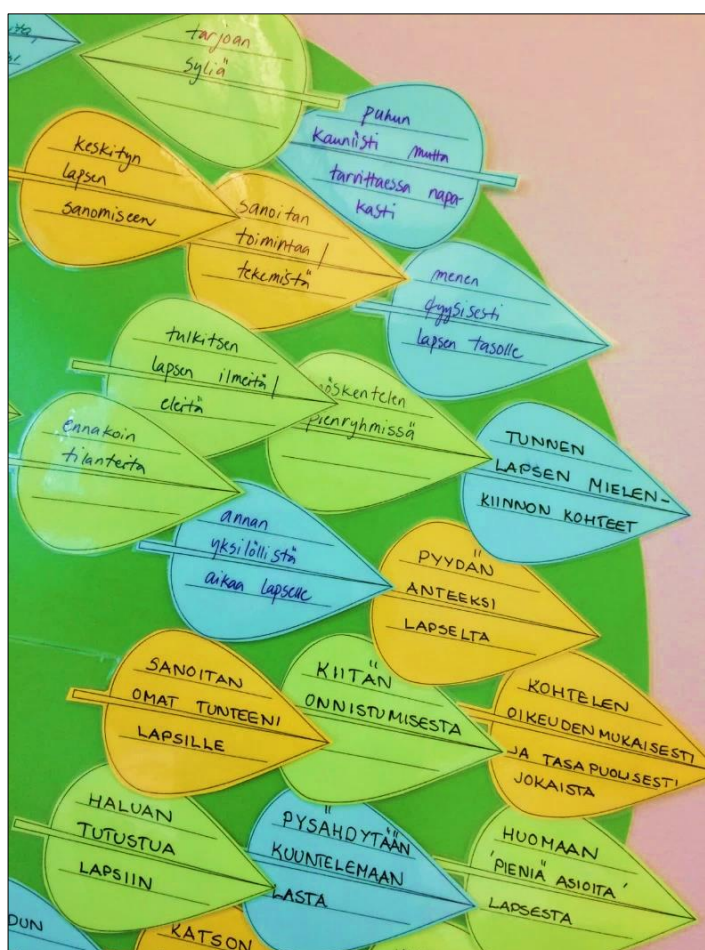 tarjoan
syliä
puhun
kauniisti mutta
tarvittaessa napa-
kasti
keskityn
lapsen
sanomiseen
sanoitan
toimintaa/
tekemistä
menen
fyysisesti
lapsen tasolle
tulkitsen
lapsen ilmeitä/
eleitä
pienryhmissä
ennakoin
tilanteita
TUNNEN
LAPSEN MIELEN-
KIINNON KOHTEET
annan
yksilöllistä
aikaa lapselle
PYYDÄN
ANTEEKSI
LAPSELTA
SANOITAN
OMAT TUNTEENI
LAPSILLE
KIITÄN
ONNISTUMISESTA
KOHTELEN
OIKEUDENMUKAISESTI
JA TASAPUOLISESTI
JOKAISTA
HALUAN
TUTUSTUA
LAPSIIN
PYSÄHDYTÄÄN
KUUNTELEMAAN
LASTA
HUOMAAN
'PIENIÄ ASIOITA'
LAPSESTA
KATSON